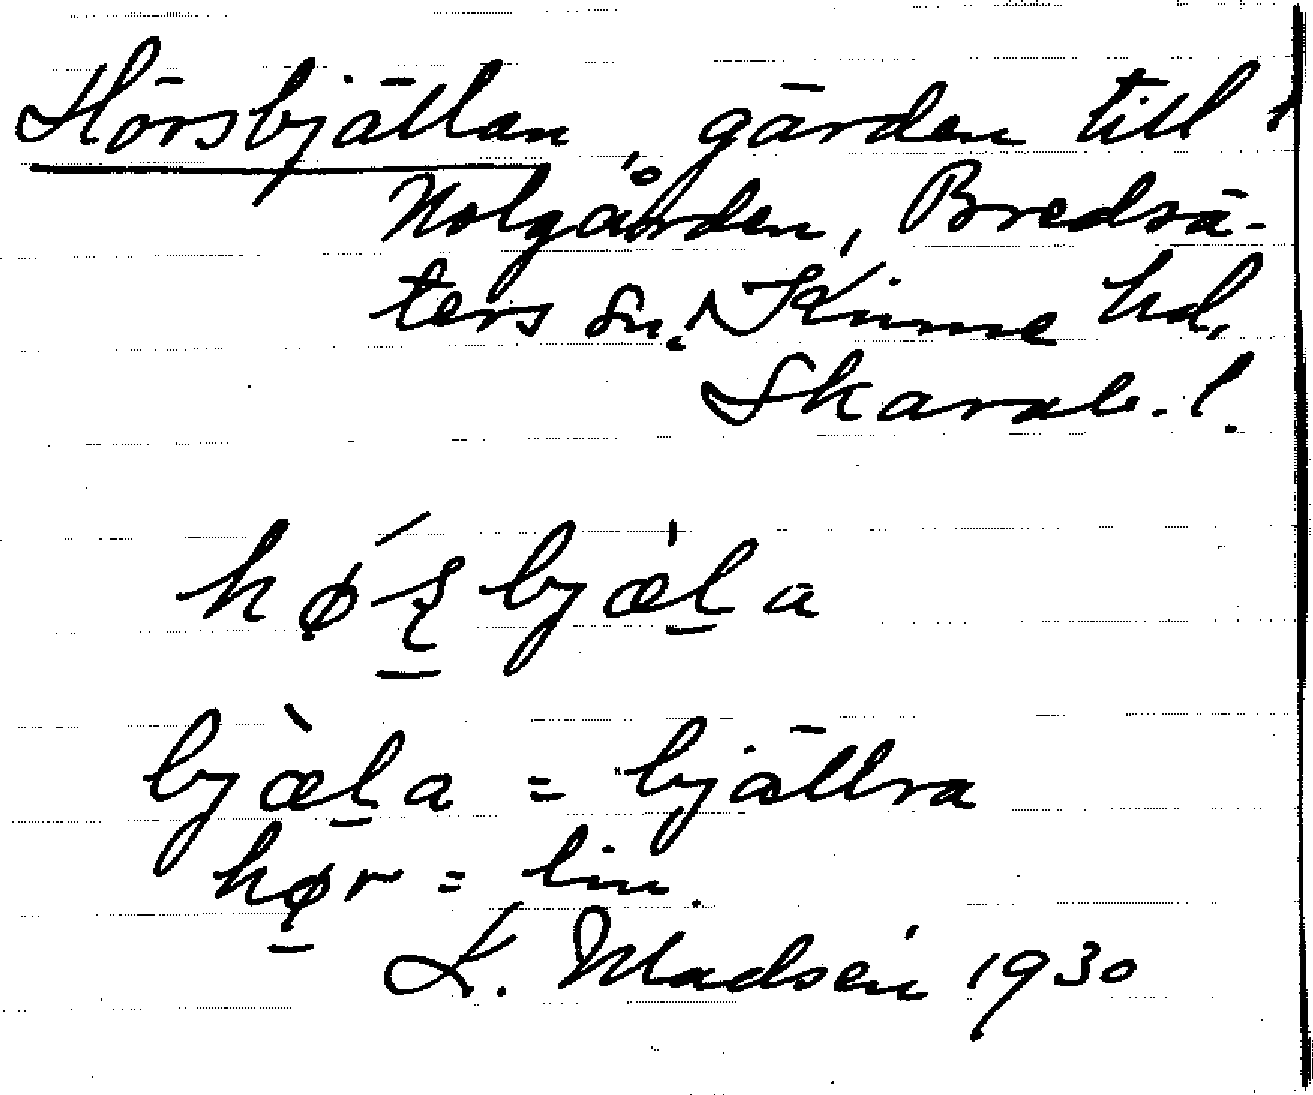 Hörsbjällan, gärden till
Nolgården, Bredsä-
ters sn, Kinne hd,
Skarab. l.
bjæl̠a = bjällra
hø̠r = lin
K. Madsén 1930